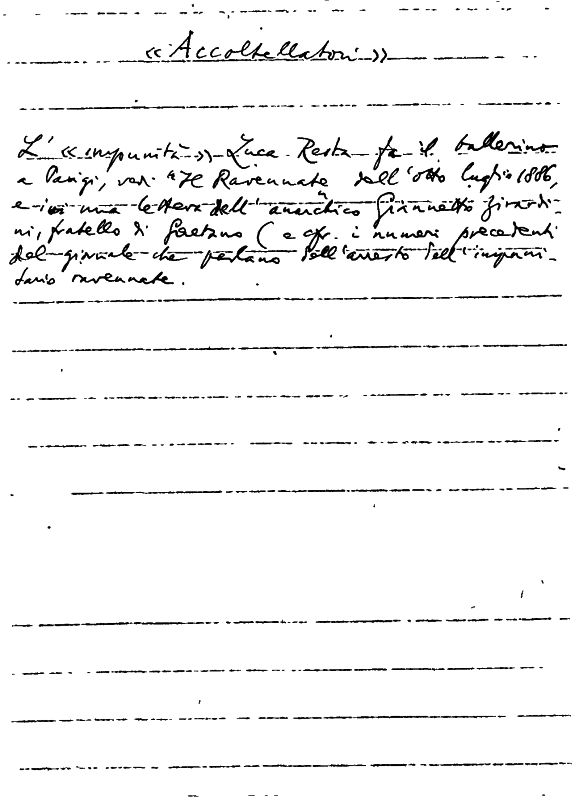 « Accoltellatori »
L' « impunità » Luca Resta fa il ballerino
a Parigi, ved. "Il Ravennate" dell'otto luglio 1886,
e ivi una lettera dell'anarchico Giannetto Girardi-
ni, fratello di Gaetano ( e cfr. i numeri precedenti
del giornale che parlano dell'arresto dell'impuni-
tario ravennate.